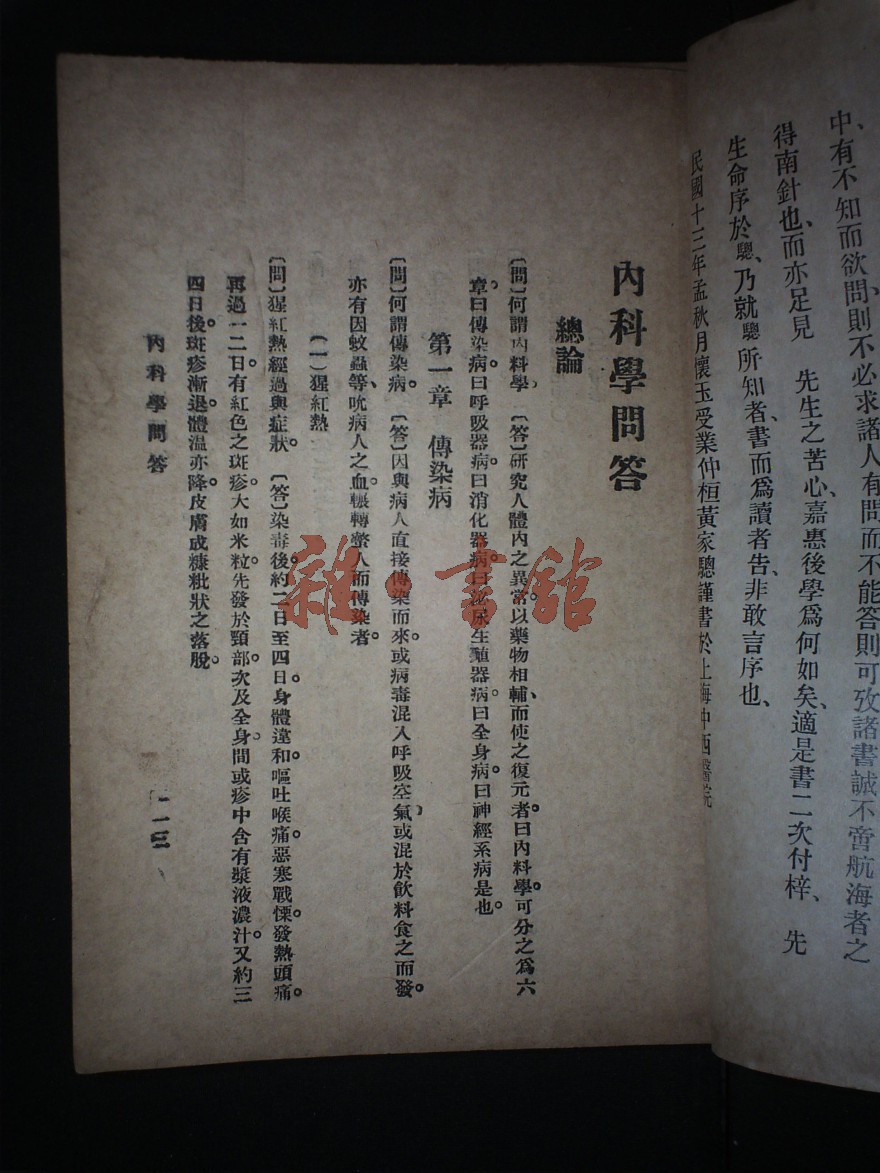 中、有不知而欲問、則不必求諸人、有問而不能答、則可攷諸書、誠不啻航海者之
得南針也、而亦足見　先生之苦心、嘉惠後學爲何如矣、適是書二次付梓、　先
生命序於驄、乃就驄所知者、書而爲讀者告、非敢言序也、
民國十三年孟秋月懷玉受業仲桓黃家驄謹書於上海中西醫院
內科學問答
總論
〔問〕何謂內科學、〔答〕研究人體內之異常。以藥物相輔、而使之復元者。曰內科學。可分之爲六
章。曰傳染病。曰呼吸器病。曰消化器病。曰泌尿生殖器病。曰全身病。曰神經系病是也。
第一章　傳染病
〔問〕何謂傳染病。〔答〕因與病人直接傳染而來。或病毒混入呼吸空氣、或混於飲料食之而發。
亦有因蚊蟲等、吮病人之血。輾轉螫人而傳染者。
（一）猩紅熱
〔問〕猩紅熱經過與症狀。〔答〕染毒後。約二日至四日。身體違和。嘔吐喉痛。惡寒戰慄。發熱頭痛。
再過一二日。有紅色之斑疹。大如米粒。先發於頸部。次及全身。間或疹中含有漿液濃汁。又約三
四日後。斑疹漸退。體溫亦降。皮膚成糠粃狀之落脫。
內科學問答
一
雜·書館